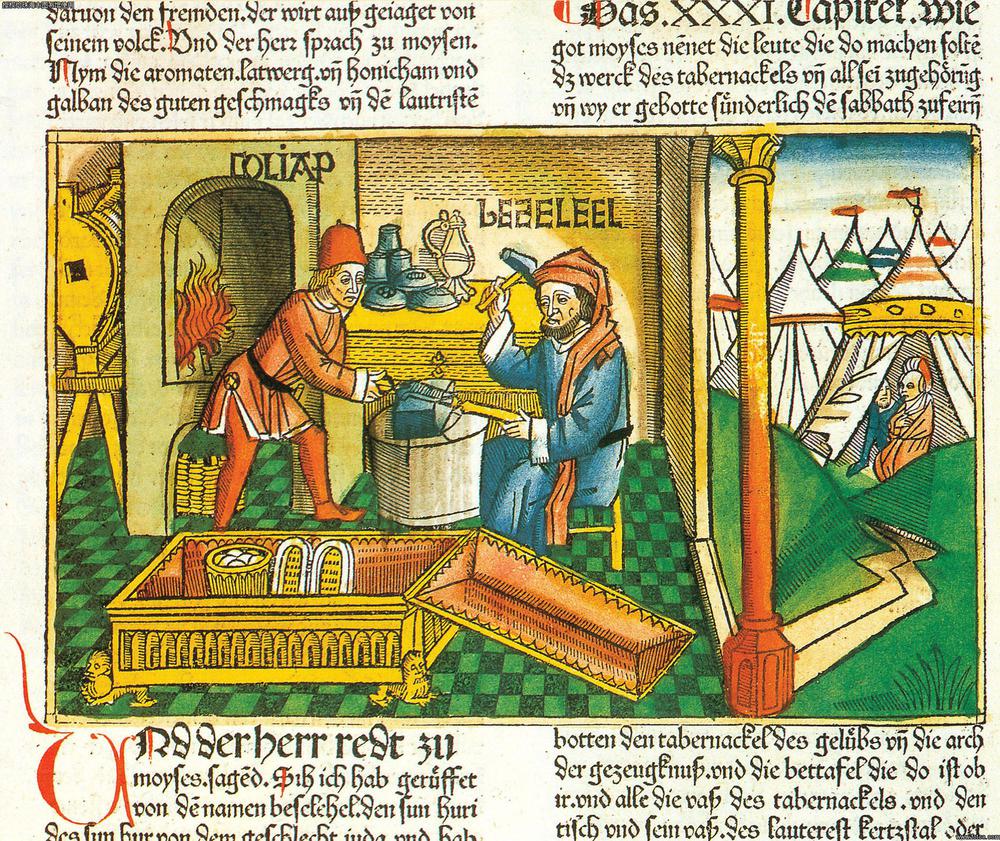 daruon den fremden.der wirt auß geiaget von
seinem volck.Vnd der herr sprach zu moysen.
Nym die aromaten.latwerg.vñ honicham vnd
galban des guten geschmacks vñ dē lautristē
Das.XXXI.Capitel.wie
got moyses nēnet die leute die do machen soltē
dz werck des tabernackels vñ all sei zugehörūg
vñ wy er gebotte sünderlich dē sabbath zufeirn̄
ooliap
beseleel
Vnd der herr redt zu
moyses.sagēd. Sih ich hab gerüffet
von dē namen beselehel.den sun huri
des sun hur von dem geschlecht iuda.vnd hab
botten den tabernackel des gelübs vñ die arch
der gezeugknuß.vnd die bettafel die do ist ob
ir.vnd alle die vaß des tabernackels.vnd den
tisch vnd sein vaß.des lauterest kertzstal oder